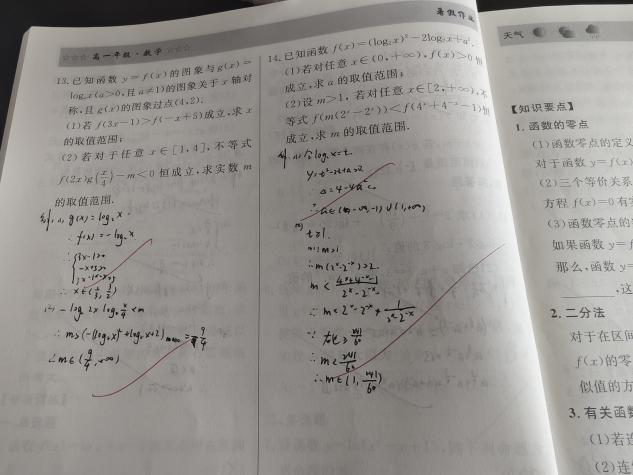 ☆☆☆ 高一年级·数学 ☆☆☆
13.已知函数 y=f(x)的图象与g(x)=
logₐx(a>0,且 a≠1)的图象关于 x 轴对
称,且 g(x)的图象过点(4,2).
(1)若 f(3x-1)>f(-x+5)成立,求 x
的取值范围;
(2)若对于任意 x∈[1,4],不等式
f(2x)g(x/4)-m<0 恒成立,求实数 m
的取值范围.
g(x)=log₂x
∴f(x)=-log₂x
3x-1>0
-x+5>0
∴x∈(1/3, 3/2)
-log₂2x log₂x/4<m
∴m>[-(log₂x)²+log₂x+2]max=9/4
∴m∈(9/4,+∞)
暑假作业
14.已知函数 f(x)=(log₂x)²-2log₂x+a².
(1)若对任意 x∈(0,+∞),f(x)>0 恒
成立,求 a 的取值范围;
(2)设 m>1,若对任意 x∈[2,+∞),不
等式 f(m(2ˣ-2⁻ˣ))<f(4ˣ+4⁻ˣ-1)恒
成立,求 m 的取值范围.
令log₂x=t
Δ=4-4a²<0
∴a∈(-∞,-1)∪(1,+∞)
t≥1
∵m>1
∴m(2ˣ-2⁻ˣ)>2
m<(4ˣ+4⁻ˣ-1)/(2ˣ-2⁻ˣ)
∴m<2ˣ-2⁻ˣ+1/(2ˣ-2⁻ˣ)
∵右化≥241/60
∴m<241/60
∴m∈(1,241/60)
天气
【知识要点】
1. 函数的零点
(1)函数零点的定义
对于函数 y=f(x)
(2)三个等价关系
方程 f(x)=0 有实
(3)函数零点的
如果函数 y=f
那么,函数 y=
,这
2. 二分法
对于在区间
f(x)的零
似值的方
3. 有关函数
(1)若连
(2)连